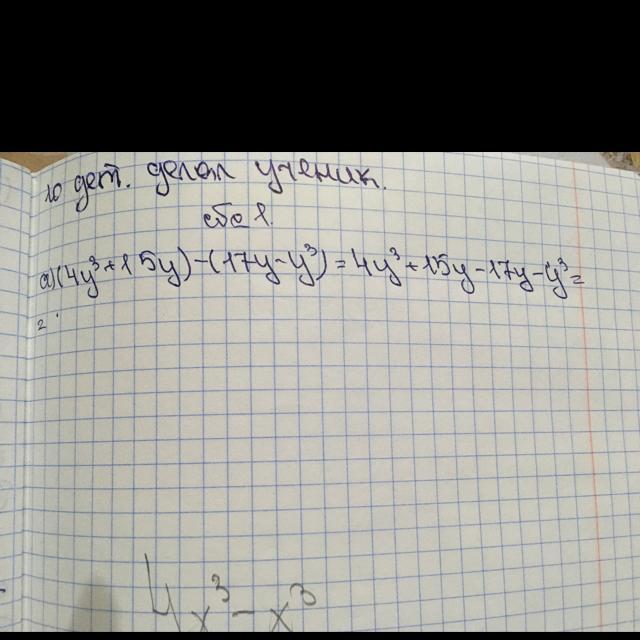 10 дет. делал ученик.
а) (4y³+15y)-(17y-y³)=4y³+15y-17y-y³=
=
4x³-x³